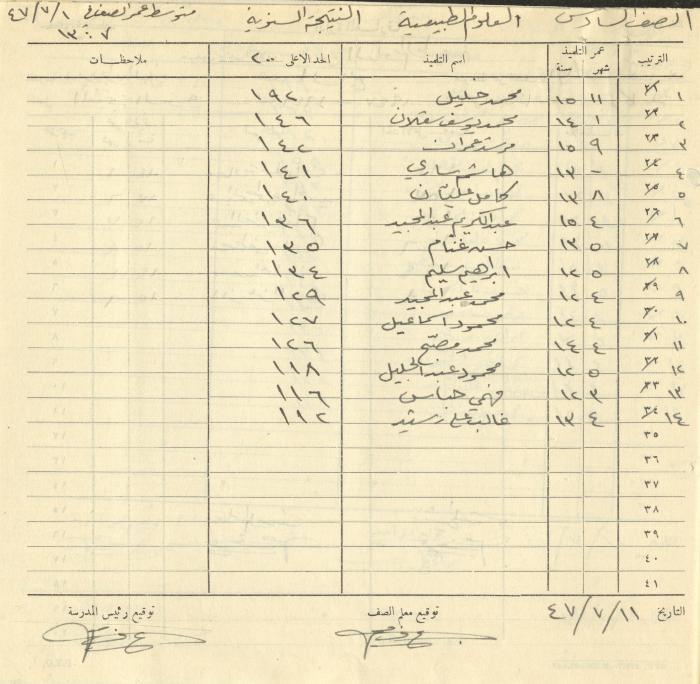 الصف السادس العلوم الطبيعية النتيجة السنوية متوسط عمر الصف في ٤٧/٧/١
١٣:٧
الترتيب عمر التلميذ شهر سنة اسم التلميذ الحد الاعلى ٢٠٠ ملاحظات
١ ١١ ١٥ محمد خليل ١٩٢
٢ ١ ١٤ محمد يوسف سقلان ١٤٦
٣ ٩ ١٥ مرشد عمران ١٤٢
٤ - ١٣ هاشم ساري ١٤١
٥ ٨ ١٣ كامل عليان ١٤٠
٦ ٤ ١٥ عبد الكريم عبد المجيد ١٣٦
٧ ٥ ١٣ حسن غنام ١٣٥
٨ ٥ ١٢ ابراهيم سليم ١٣٤
٩ ٤ ١٢ محمد عبد المجيد ١٢٩
١٠ ٤ ١٢ محمود اسماعيل ١٢٧
١١ ٤ ١٤ محمد مصلح ١٢٦
١٢ ٥ ١٢ محمود عبد الجليل ١١٨
١٣ ٣ ١٢ فهمي حباس ١١٦
١٤ ٤ ١٣ غالب علي رشيد ١١٢
٣٥
٣٦
٣٧
٣٨
٣٩
٤٠
٤١
التاريخ ٤٧/٧/١١ توقيع معلم الصف توقيع رئيس المدرسة